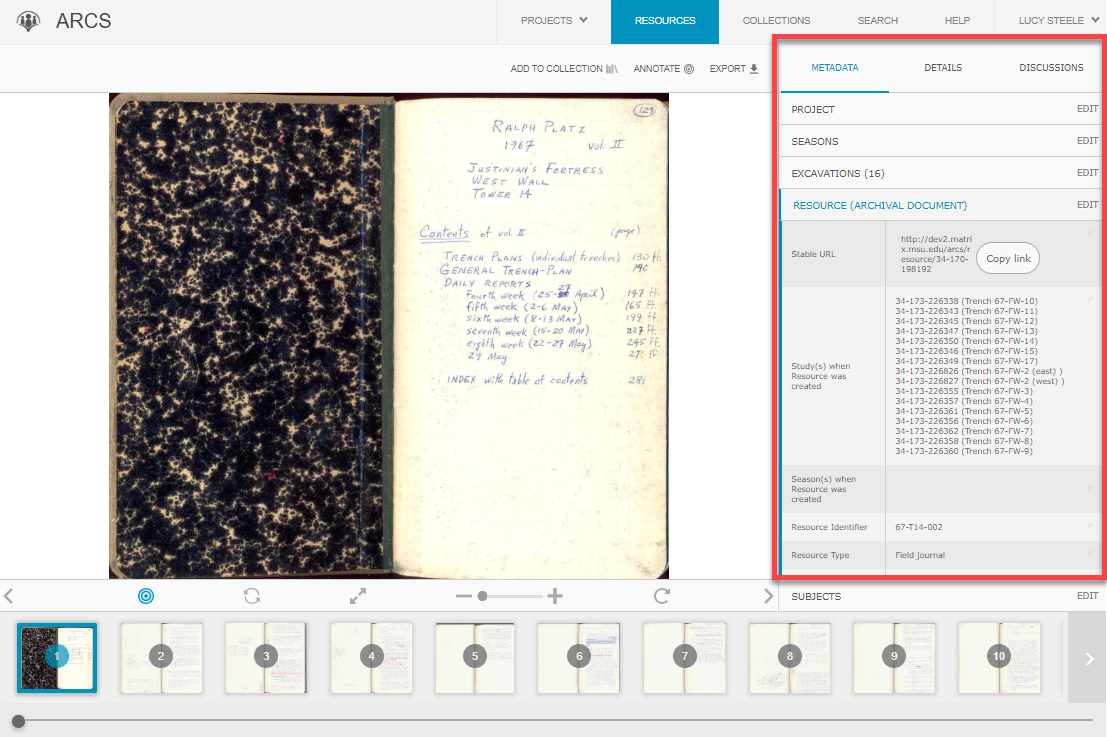 ARCS
PROJECTS
RESOURCES
COLLECTIONS
SEARCH
HELP
LUCY STEELE
ADD TO COLLECTION
ANNOTATE
EXPORT
METADATA
DETAILS
DISCUSSIONS
129
RALPH PLATZ
1967 vol. II
JUSTINIAN'S FORTRESS
WEST WALL
TOWER 14
Contents of vol. II (page)
TRENCH PLANS (individual trenches) 130 ff.
GENERAL TRENCH-PLAN 140
DAILY REPORTS
fourth week (25-27 April) 147 ff.
fifth week (2-6 May) 165 ff.
sixth week (8-13 May) 199 ff.
seventh week (15-20 May) 227 ff.
eighth week (22-27 May) 245 ff.
29 May ff
INDEX with table of contents 281
PROJECT EDIT
SEASONS EDIT
EXCAVATIONS (16) EDIT
RESOURCE (ARCHIVAL DOCUMENT) EDIT
Stable URL
http://dev2.matri
x.msu.edu/arcs/r
esource/34-170-
198192
Copy link
Study(s) when
Resource was
created
34-173-226338 (Trench 67-FW-10)
34-173-226343 (Trench 67-FW-11)
34-173-226345 (Trench 67-FW-12)
34-173-226347 (Trench 67-FW-13)
34-173-226350 (Trench 67-FW-14)
34-173-226346 (Trench 67-FW-15)
34-173-226349 (Trench 67-FW-17)
34-173-226826 (Trench 67-FW-2 (east) )
34-173-226827 (Trench 67-FW-2 (west) )
34-173-226355 (Trench 67-FW-3)
34-173-226357 (Trench 67-FW-4)
34-173-226361 (Trench 67-FW-5)
34-173-226356 (Trench 67-FW-6)
34-173-226362 (Trench 67-FW-7)
34-173-226358 (Trench 67-FW-8)
34-173-226360 (Trench 67-FW-9)
Season(s) when
Resource was
created
Resource Identifier 67-T14-002
Resource Type Field journal
SUBJECTS EDIT
1 2 3 4 5 6 7 8 9 10